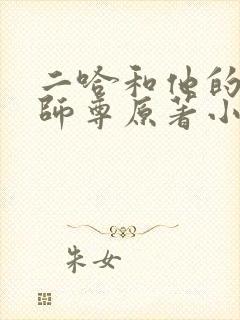 二哈和他的
師尊原著小
朱女